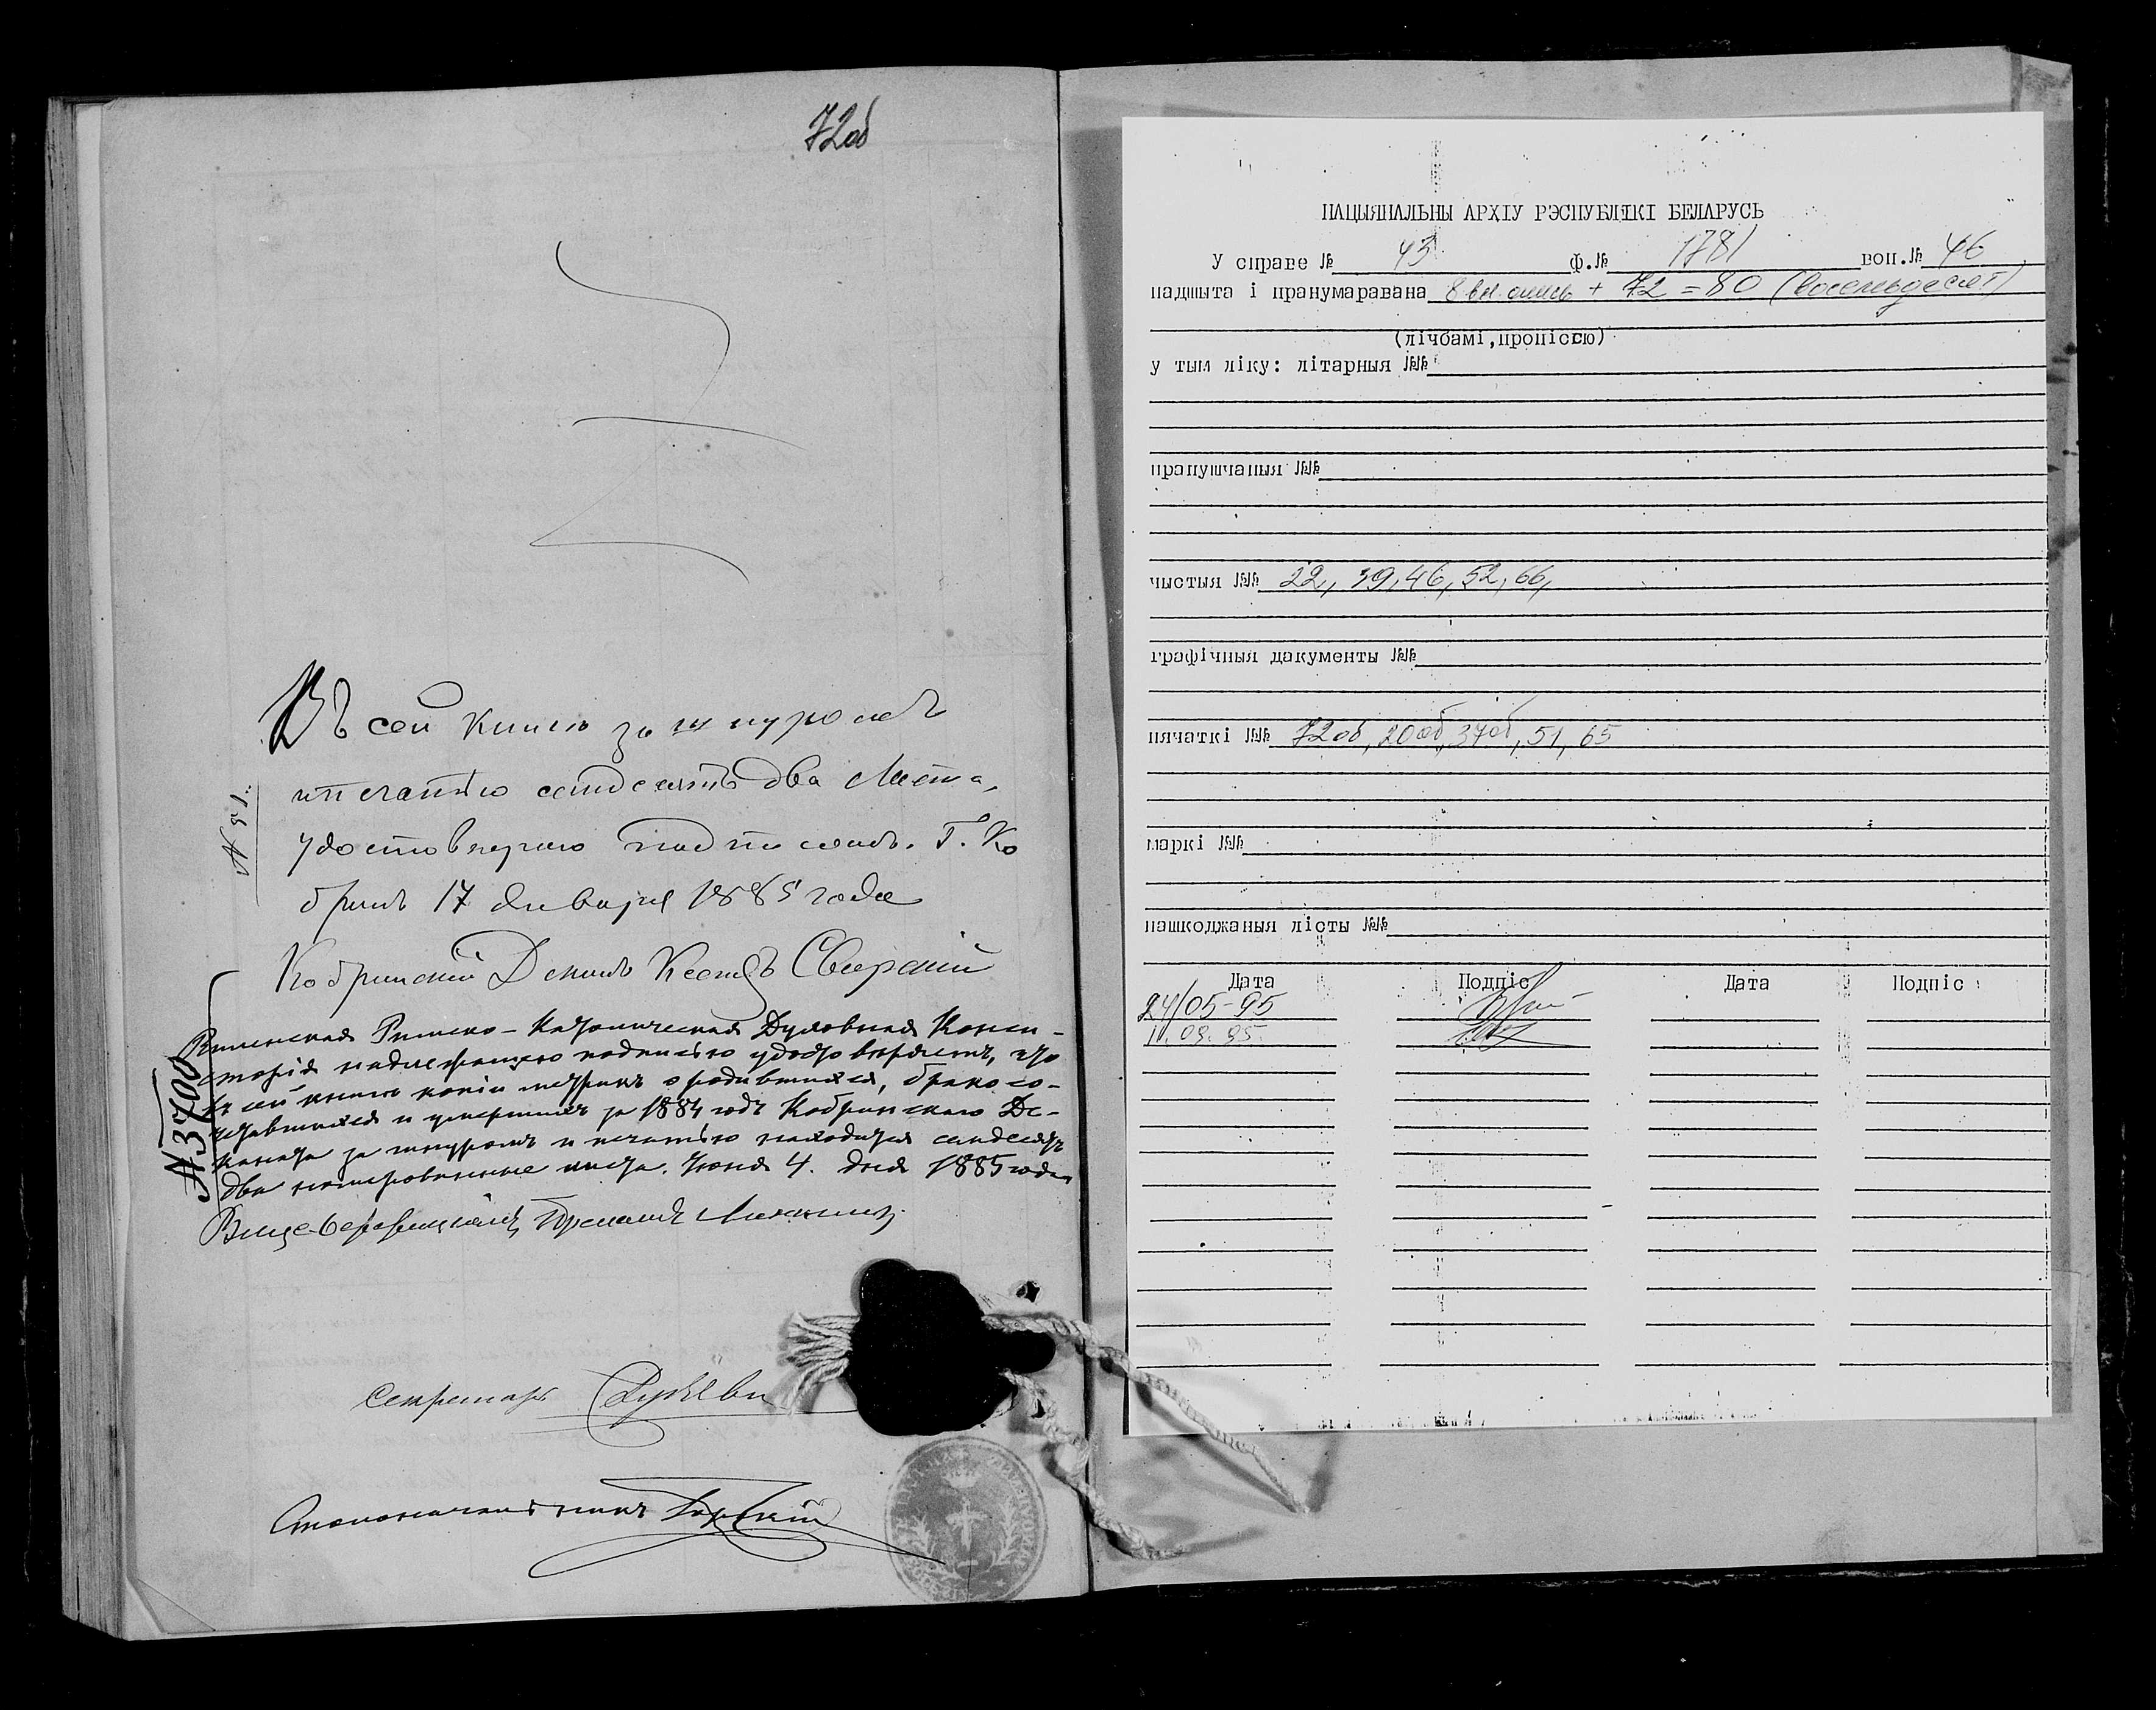 72об
Въ сей книгѣ за шнуромъ
и печатью семдесятъ два листа,
удостовѣряю подписомъ. Г. Ко
бринъ 17 Января 1885 года
Кобринскій Деканъ Ксендзъ Свирскій
№ 51.
Виленская Римско-Католическая Духовная Конси-
сторія надлежащею надписью удостовѣряетъ, что
въ сей книгѣ копіи метрикъ о родившихся, бракосо-
четавшихся и умершихъ за 1884 годъ Кобринскаго Де-
каната за шнуромъ и печатью находится семдесятъ
два нумерованные листа. Іюня 4. дня 1885 года
№ 3700
Вице-
Секретарь
Столоначальникъ
НАЦЫЯНАЛЬНЫ АРХІУ РЭСПУБЛІКІ БЕЛАРУСЬ
У справе № 43 ф.№ 1781 воп.№ 46
падшыта і пранумаравана 8 вн. опись + 72 = 80 (восемьдесят)
(лічбамі,пропіссю)
у тым ліку: літарныя №№
прапушчаныя №№
чыстыя №№ 22, 39, 46, 52, 66,
графічныя дакументы №№
пячаткі №№ 72об, 20об, 37об, 51, 65
маркі №№
пашкоджаныя лісты №№
Дата Подпіс Дата Подпіс
24/05-95
11.09.95.